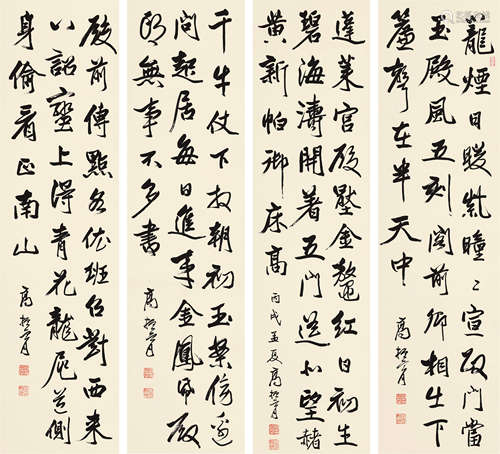 籠煙日暖紫曈〻宣政門當
玉殿風五刻閣前卿相出下
簾聲在半天中
高振霄
蓬萊宮殿壓金鰲紅日初生
碧海濤開著五門遙北望赭
黃新帕御床高
丙戌孟夏高振霄
千牛仗下放朝初玉案傍邊
問起居每日進來金鳳帋殿
頭無事不多書
高振霄
殿前傳點各依班召對西來
八詔蠻上得青花龍尾道側
身偷看正南山
高振霄